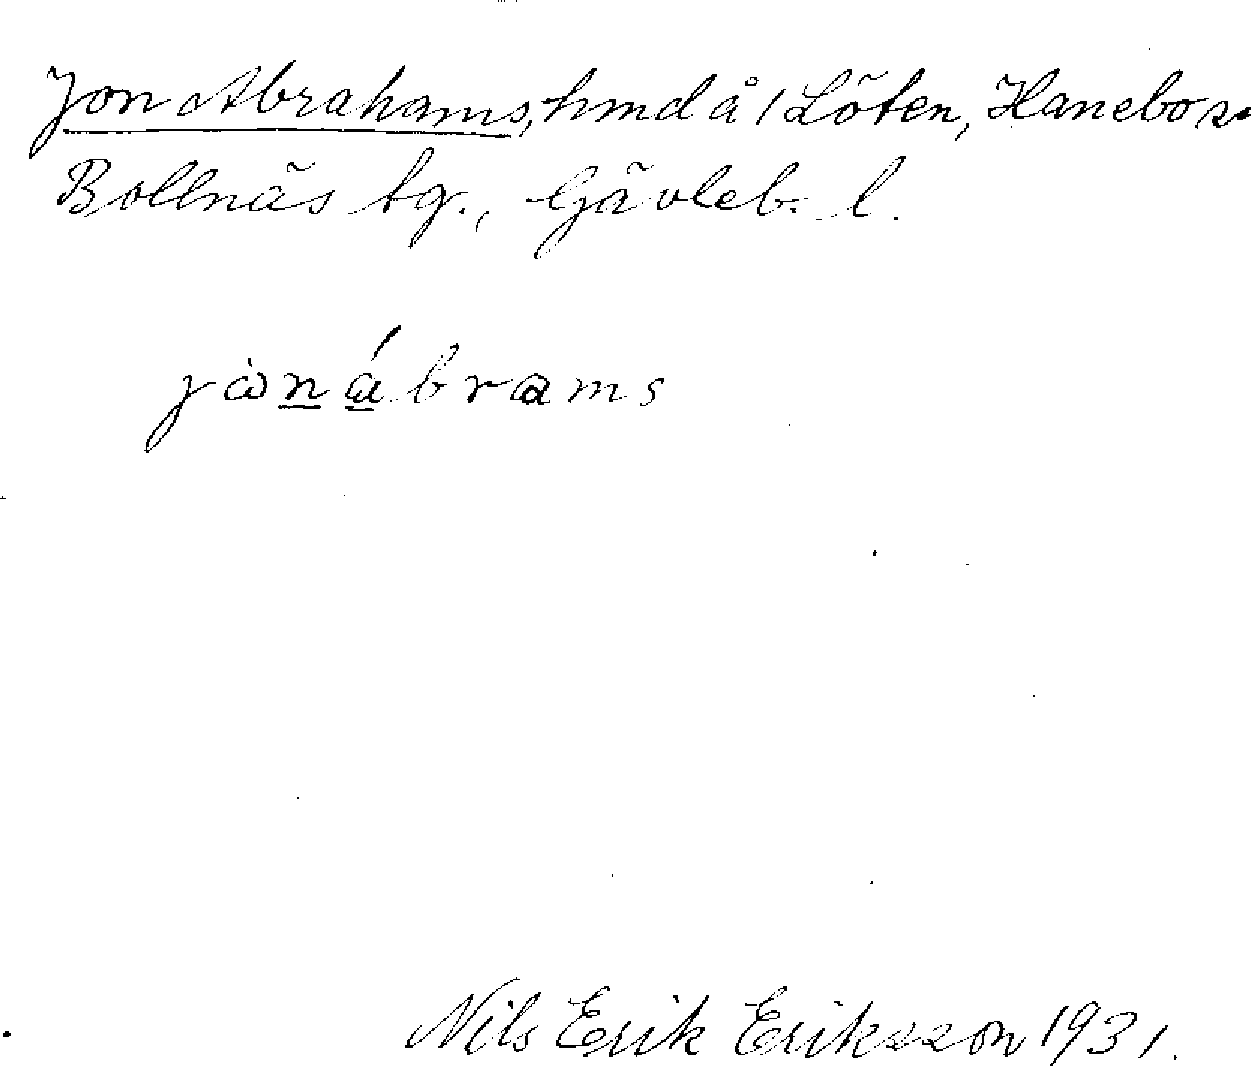 Jon Abrahams, hmd å 1 Löten, Hanebo s.
Bollnäs tg., Gävleb. l.
jònábrams
Nils Erik Eriksson 1931.